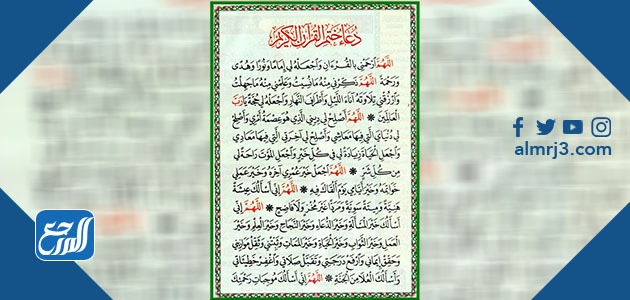 دُعَاءُ خَتْمِ الْقُرْآنِ الْكَرِيمِ
اللَّهُمَّ ارْحَمْنِي بِالْقُرْءَانِ وَاجْعَلْهُ لِي إِمَامًا وَنُورًا وَهُدًى
وَرَحْمَةً اللَّهُمَّ ذَكِّرْنِي مِنْهُ مَا نَسِيتُ وَعَلِّمْنِي مِنْهُ مَا جَهِلْتُ
وَارْزُقْنِي تِلَاوَتَهُ آنَاءَ اللَّيْلِ وَأَطْرَافَ النَّهَارِ وَاجْعَلْهُ لِي حُجَّةً يَا رَبَّ
الْعَالَمِينَ * اللَّهُمَّ أَصْلِحْ لِي دِينِي الَّذِي هُوَ عِصْمَةُ أَمْرِي وَأَصْلِحْ
لِي دُنْيَايَ الَّتِي فِيهَا مَعَاشِي وَأَصْلِحْ لِي آخِرَتِي الَّتِي فِيهَا مَعَادِي
وَاجْعَلِ الْحَيَاةَ زِيَادَةً لِي فِي كُلِّ خَيْرٍ وَاجْعَلِ الْمَوْتَ رَاحَةً لِي
مِنْ كُلِّ شَرٍّ * اللَّهُمَّ اجْعَلْ خَيْرَ عُمْرِي آخِرَهُ وَخَيْرَ عَمَلِي
خَوَاتِمَهُ وَخَيْرَ أَيَّامِي يَوْمَ أَلْقَاكَ فِيهِ * اللَّهُمَّ إِنِّي أَسْأَلُكَ عِيشَةً
هَنِيَّةً وَمِيتَةً سَوِيَّةً وَمَرَدًّا غَيْرَ مُخْزٍ وَلَا فَاضِحٍ * اللَّهُمَّ إِنِّي
أَسْأَلُكَ خَيْرَ الْمَسْأَلَةِ وَخَيْرَ الدُّعَاءِ وَخَيْرَ النَّجَاحِ وَخَيْرَ الْعِلْمِ وَخَيْرَ
الْعَمَلِ وَخَيْرَ الثَّوَابِ وَخَيْرَ الْحَيَاةِ وَخَيْرَ الْمَمَاتِ وَثَبِّتْنِي وَثَقِّلْ مَوَازِينِي
وَحَقِّقْ إِيمَانِي وَارْفَعْ دَرَجَتِي وَتَقَبَّلْ صَلَاتِي وَاغْفِرْ خَطِيئَاتِي
وَأَسْأَلُكَ الْعُلَا مِنَ الْجَنَّةِ * اللَّهُمَّ إِنِّي أَسْأَلُكَ مُوجِبَاتِ رَحْمَتِكَ
almrj3.com
المرجع